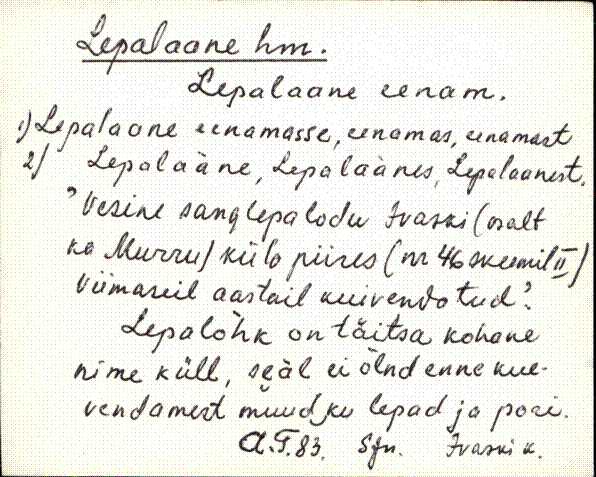 Lepalaane hm.
Lepalaane eenam.
1) Lepalaane eenamasse, eenamas, eenamast
2) Lepalääne, Lepaläänes, Lepalaanest.
'Vesine sanglepalodu Ivaski (osalt
ka Murru) küla piires (nr 46 skeemil II)
viimaseil aastail kuivendatud'.
Lepalõhk on täitsa kohane
nime küll, seäl ei õlnd enne kue-
vendamest muud ku lepad ja pori.
A.T. 83. Sjn. Ivaski k.